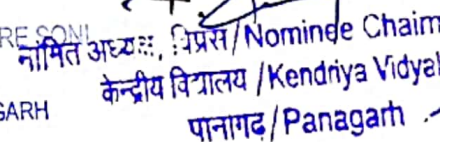 RE SONI
नामित अध्यक्ष, विप्रस/Nominee Chaim
केन्द्रीय विद्यालय /Kendriya Vidyal
GARH
पानागढ़/Panagarh